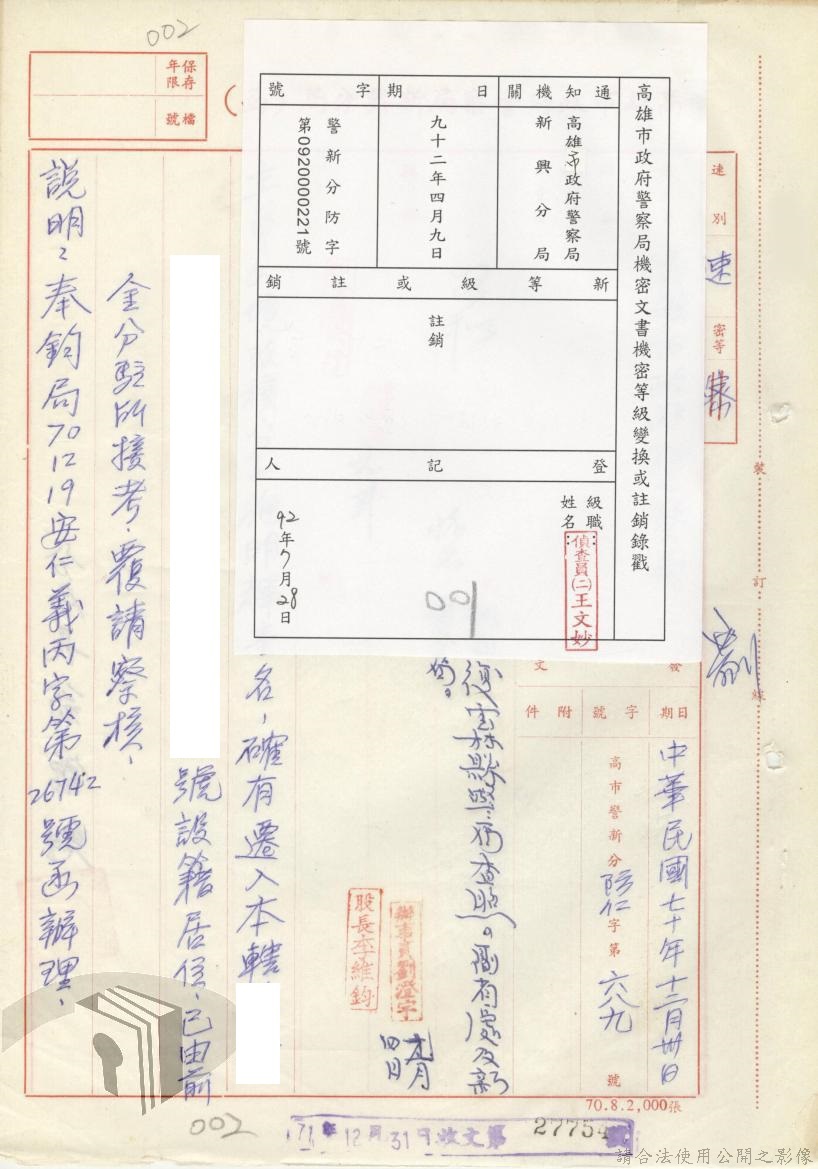 002
保存年限
檔號
高雄市政府警察局機密文書機密等級變換或註銷錄戳
通知機關
日期
字號
高雄市政府警察局
新興分局
九十二年四月九日
警新分防字
第0920000221號
新等級或註銷
註銷
登記人
級職
姓名：
偵查員(二)王文妙
92年7月28日
001
速別
速
密等
裝
訂
線
發
文
日期
字號
附件
中華民國七十年十二月卅日
高市警新分防仁字第六八九號
股長李維鈞
辦事員劉澄宇
元月
四日
名，確有遷入本轄
號設籍居住，已由前
金分駐所接考，覆請察核，
說明：奉鈞局70 12 19安仁義丙字第26742號函辦理，
70.8.2,000張
002
12月31日收文第27754號
請合法使用公開之影像